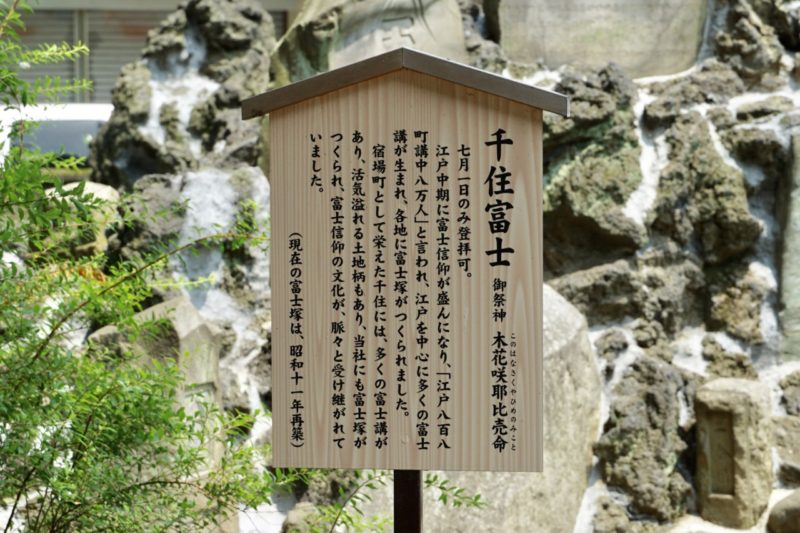 千住富士 御祭神 木花咲耶比売命
このはなさくやひめのみこと
七月一日のみ登拝可。
江戸中期に富士信仰が盛んになり、「江戸八百八
町講中八万人」と言われ、江戸を中心に多くの富士
講が生まれ、各地に富士塚がつくられました。
宿場町として栄えた千住には、多くの富士講が
あり、活気溢れる土地柄もあり、当社にも富士塚が
つくられ、富士信仰の文化が、脈々と受け継がれて
いました。
(現在の富士塚は、昭和十一年再築)